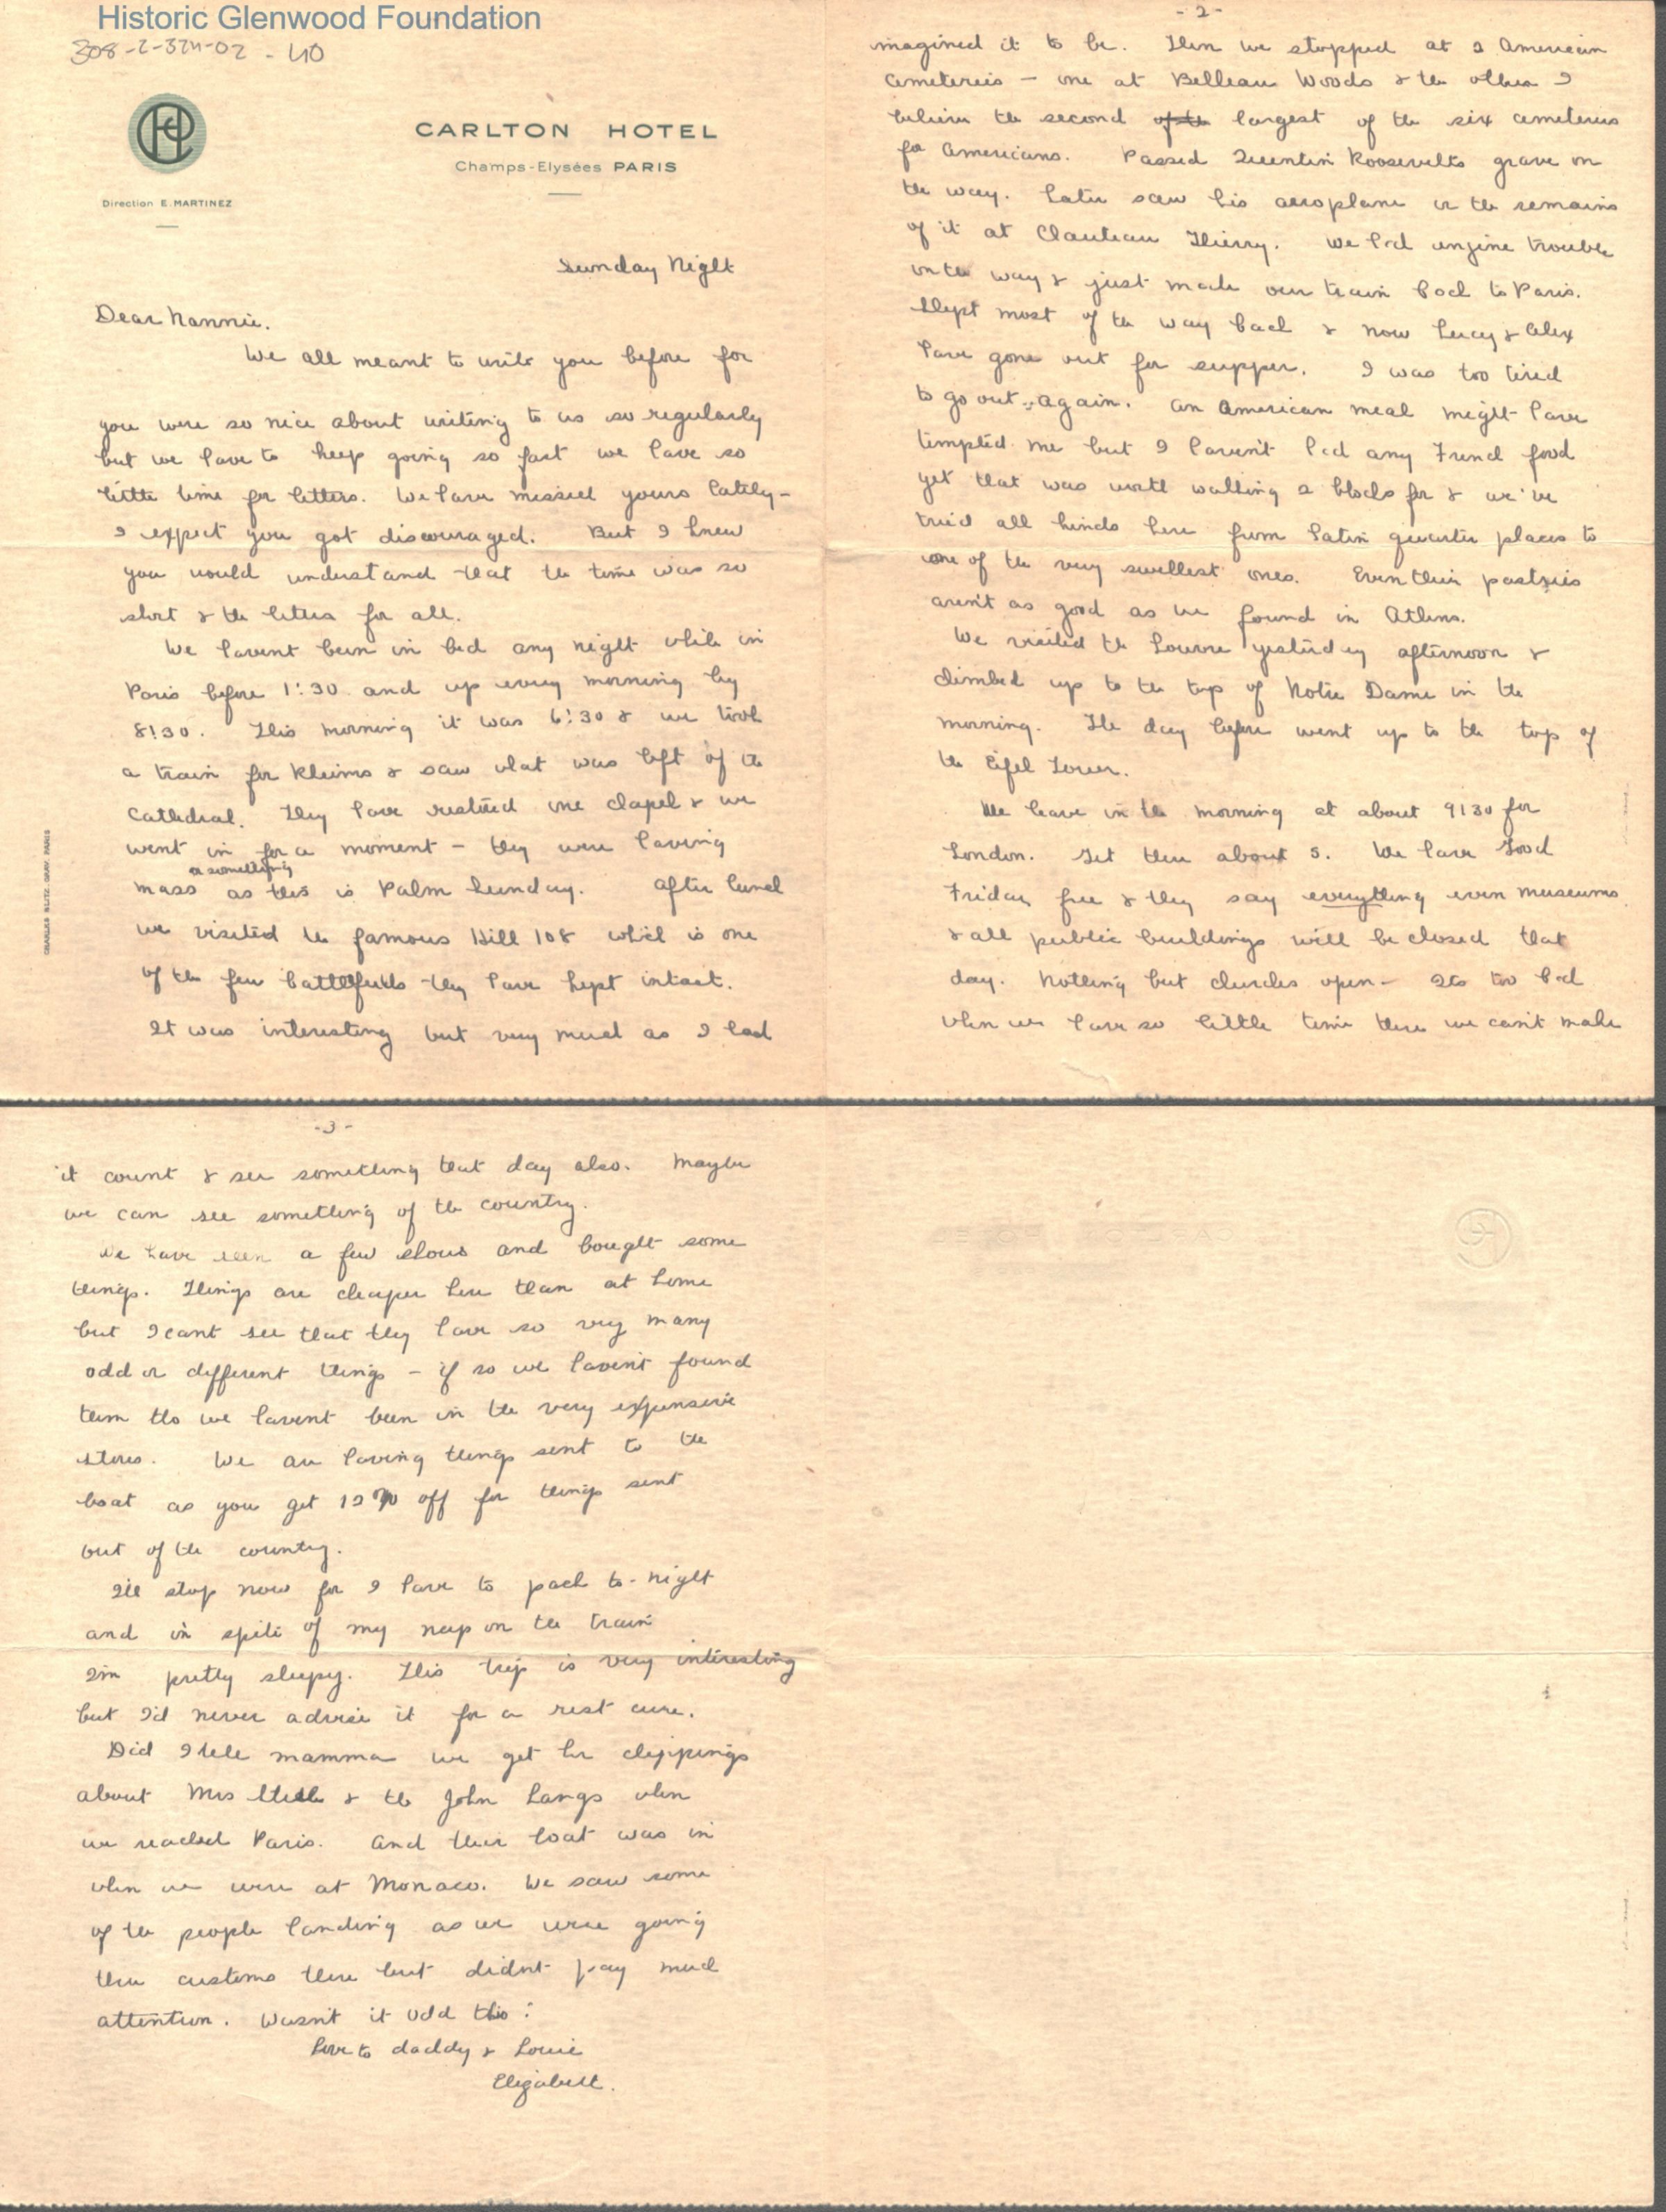 Historic Glenwood Foundation
308-2-324-02 - 40
CARLTON HOTEL
Champs-Elysées PARIS
Direction E. MARTINEZ
Sunday Night
Dear Nannie.
We all meant to write you before for
you were so nice about writing to us so regularly
but we have to keep going so fast we have so
little time for letters. We have missed yours lately -
I expect you got discouraged. But I knew
you would understand that the time was so
short & the letters for all.
We havent been in bed any night while in
Paris before 1:30 and up every morning by
8:30. This morning it was 6:30 & we took
a train for Rheims & saw what was left of the
Cathedral. They have restored one chapel & we
went in for a moment - they were having
or something
mass as this is Palm Sunday. After lunch
we visited the famous Hill 108 which is one
of the few battlefields they have kept intact.
It was interesting but very much as I had
CHARLES BLITZ. GRAV. PARIS
- 2 -
imagined it to be. Then we stopped at 2 American
Cemeteries - one at Belleau Woods & the other I
believe the second of the largest of the six cemeteries
for Americans. Passed Quentin Roosevelts grave on
the way. Later saw his aeroplane or the remains
of it at Chauteau Thierry. We had engine trouble
on the way & just made our train back to Paris.
Slept most of the way back & now Lucy & Alex
have gone out for supper. I was too tired
to go out again. An American meal might have
tempted me but I haven't had any French food
yet that was worth walking 2 blocks for & we've
tried all kinds here from Latin quarter places to
one of the very swellest ones. Even their pastries
aren't as good as we found in Athens.
We visited the Louvre yesterday afternoon &
climbed up to the top of Notre Dame in the
morning. The day before went up to the top of
the Eifel Tower.
We leave in the morning at about 9:30 for
London. Get there about 5. We have Good
Friday free & they say everything even museums
& all public buildings will be closed that
day. Nothing but churches open - Its too bad
when we have so little time there we can't make
- 3 -
it count & see something that day also. Maybe
we can see something of the country.
We have seen a few shows and bought some
things. Things are cheaper here than at home
but I cant see that they have so very many
odd or different things - if so we haven't found
them tho we havent been in the very expensive
stores. We are having things sent to the
boat as you get 12% off for things sent
out of the country.
I'll stop now for I have to pack to-night
and in spite of my nap on the train
I'm pretty sleepy. This trip is very interesting
but I'd never advise it for a rest cure.
Did I tell mamma we got her clippings
about Mrs & the John Langs when
we reached Paris. And their boat was in
when we were at Monaco. We saw some
of the people landing as we were going
thru customs there but didnt pay much
attention. Wasn't it odd tho!
Love to daddy & Louie
Elizabeth.